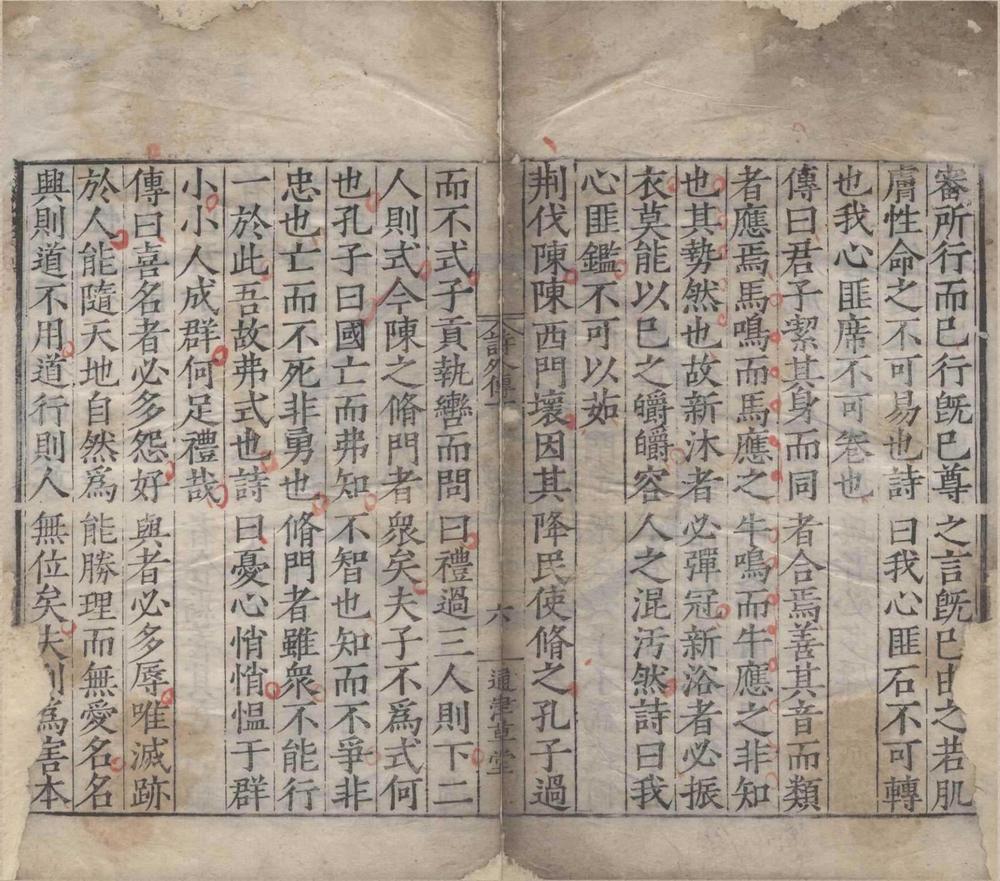 審所行而已行旣已尊之言旣已由之若肌
膚性命之不可易也詩曰我心匪石不可轉
也我心匪席不可卷也
傳曰君子潔其身而同者合焉善其音而類
者應焉馬鳴而馬應之牛鳴而牛應之非知
也其勢然也故新沐者必彈冠新浴者必振
衣莫能以已之皭皭容人之混汚然詩曰我
心匪鑑不可以茹
荆伐陳陳西門壞因其降民使脩之孔子過
詩外傳一
六
通津草堂
而不式子貢執轡而問曰禮過三人則下二
人則式今陳之脩門者衆矣夫子不爲式何
也孔子曰國亡而弗知不智也知而不爭非
忠也亡而不死非勇也脩門者雖衆不能行
一於此吾故弗式也詩曰憂心悄悄愠于群
小小人成群何足禮哉
傳曰喜名者必多怨好與者必多辱唯滅跡
於人能隨天地自然爲能勝理而無愛名名
興則道不用道行則人無位矣夫利爲害本